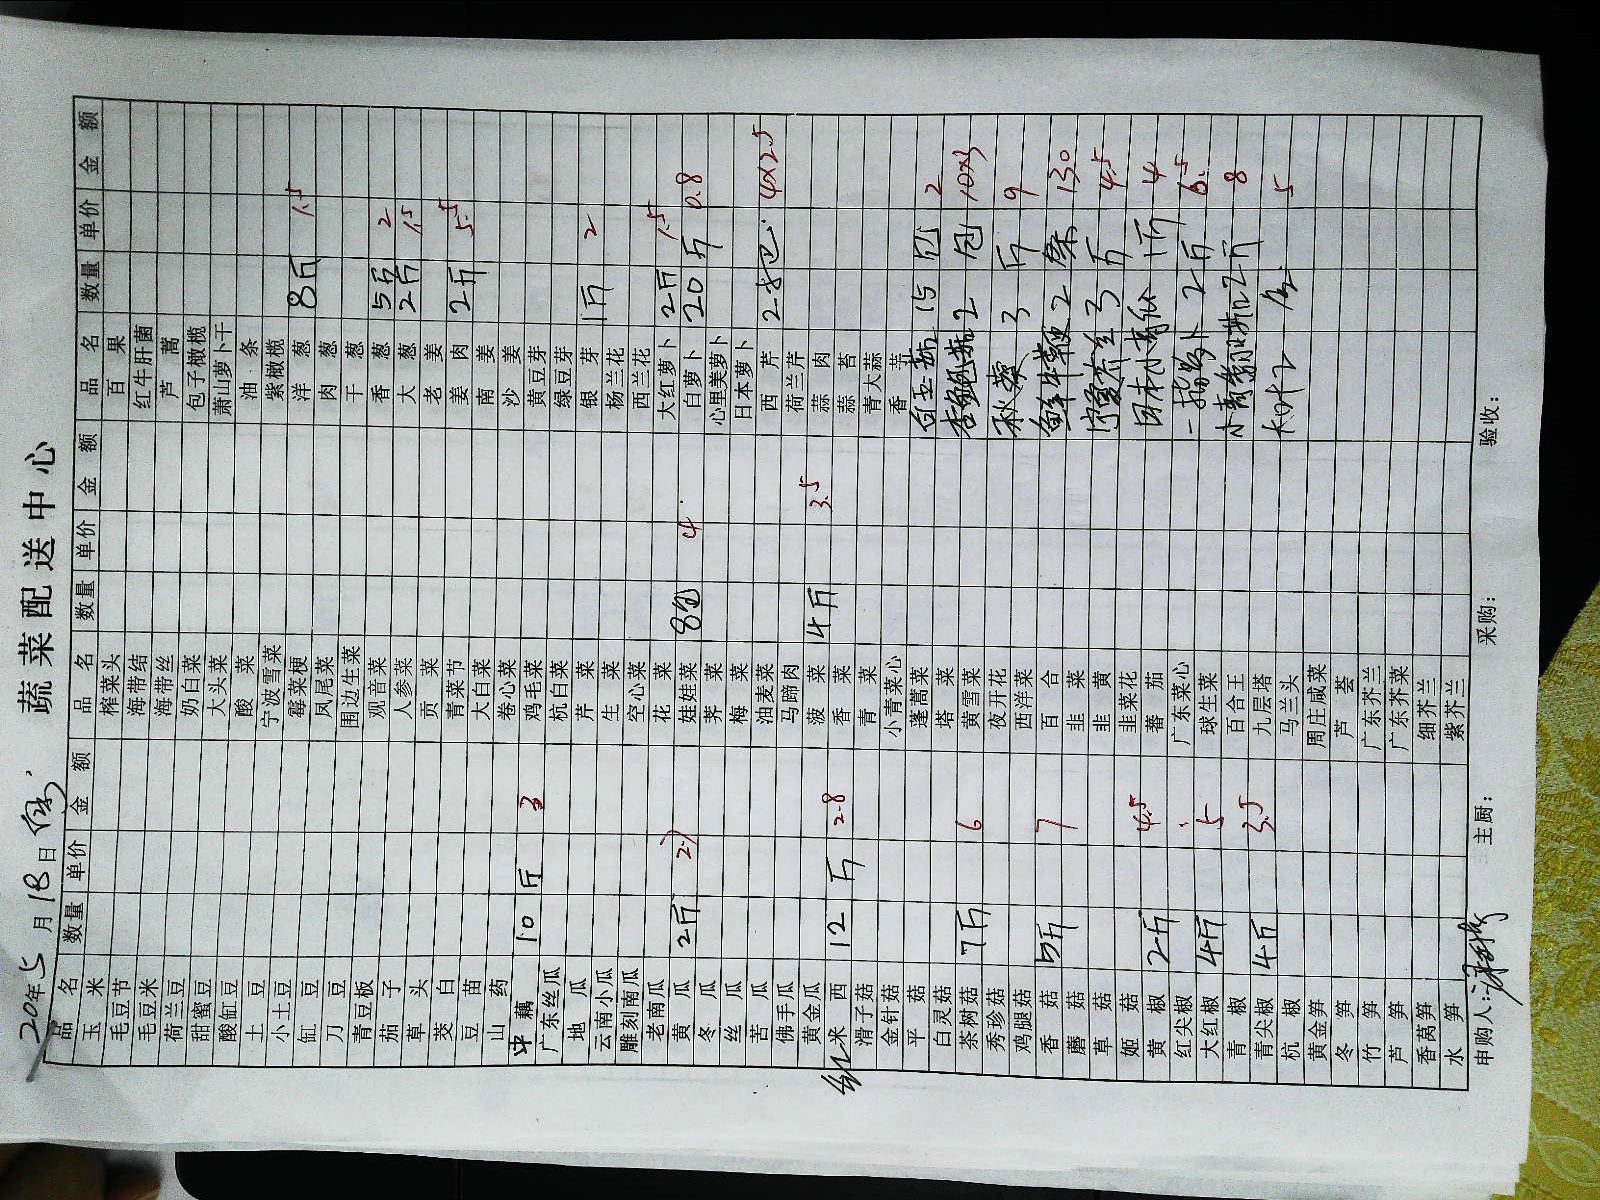 蔬菜配送中心
20 年 5 月 18 日
品名 数量 单价 金额 品名 数量 单价 金额 品名 数量 单价 金额
玉米 榨菜头 百果
毛豆节 海带结 红牛肝菌
毛豆米 海带丝 芦蒿
荷兰豆 奶白菜 包子橄榄
甜蜜豆 大头菜 萧山萝卜干
酸缸豆 酸菜 油条
土豆 宁波雪菜 紫橄榄
小土豆 霉菜梗 洋葱 8斤 1.5
缸豆 凤尾菜 肉葱
刀豆 围边生菜 干葱
青豆板 观音菜 香葱 5斤 2
茄子 人参菜 大葱 2斤 1.5
草头 贡菜 老姜
茭白 青菜节 姜肉 2斤 5.5
豆苗 大白菜 南姜
山药 卷心菜 沙姜
藕 10斤 3 鸡毛菜 黄豆芽
广东丝瓜 杭白菜 绿豆芽
地瓜 芹菜 银芽 1斤 2
云南小瓜 生菜 杨兰花
雕刻南瓜 空心菜 西兰花
老南瓜 花菜 大红萝卜 2斤 1.5
黄瓜 2斤 娃娃菜 8包 4 白萝卜 20斤 0.8
冬瓜 荠菜 心里美萝卜
丝瓜 梅菜 日本萝卜
苦瓜 油麦菜 西芹 4×2.5
佛手瓜 马蹄肉 荷兰芹
黄金瓜 菠菜 4斤 3.5 蒜肉
红米西 12斤 2.8 香菜 蒜苔
滑子菇 青菜 青大蒜
金针菇 小青菜心 香芋
平菇 蓬蒿菜 白玉菇 15包 2
白灵菇 塔菜
茶树菇 7斤 6 黄雪菜 杏鲍菇 2包 10×3
秀珍菇 夜开花
鸡腿菇 西洋菜 秋葵 3斤 9
香菇 5斤 7 百合
蘑菇 韭菜 鲜牛鞭 2条 130
草菇 韭黄
姬菇 韭菜花 3斤 4.5
黄椒 2斤 4.5 蕃茄 1斤 4
红尖椒 广东菜心
大红椒 4斤 5 球生菜 2斤 6.5
青椒 百合王 2斤 8
青尖椒 4斤 3.5 九层塔
杭椒 马兰头 5
黄金笋 周庄咸菜
冬笋 芦荟
竹笋 广东芥兰
芦笋 广东芥菜
香莴笋 细芥兰
水笋 紫芥兰
申购人: 主厨: 采购: 验收: